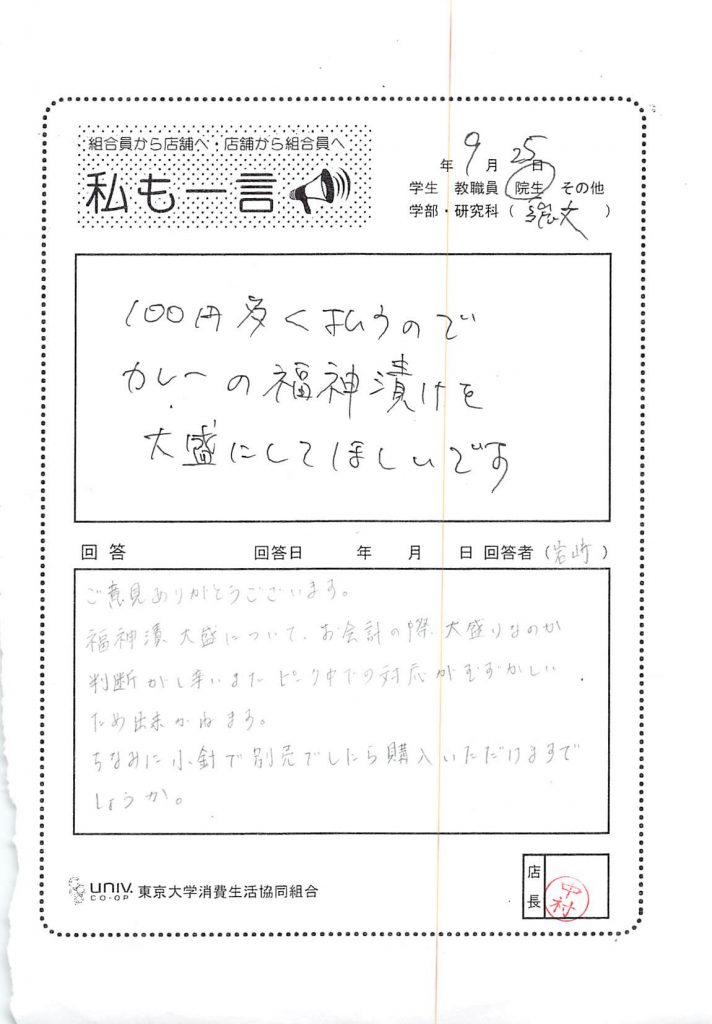 組合員から店舗へ・店舗から組合員へ
私も一言
年 9 月 25 日
学生 教職員 院生 その他
学部・研究科 ( 総文 )
100円多く払うので
カレーの福神漬けを
大盛にしてほしいです
回答 回答日 年 月 日 回答者 (岩崎)
ご意見ありがとうございます。
福神漬大盛について、お会計の際、大盛りなのか
判断がし辛いまたピーク中での対応がむずかしい
ため出来かねます。
ちなみに小針で別売でしたら購入いただけますで
しょうか。
UNIV. CO-OP 東京大学消費生活協同組合
店長
中村